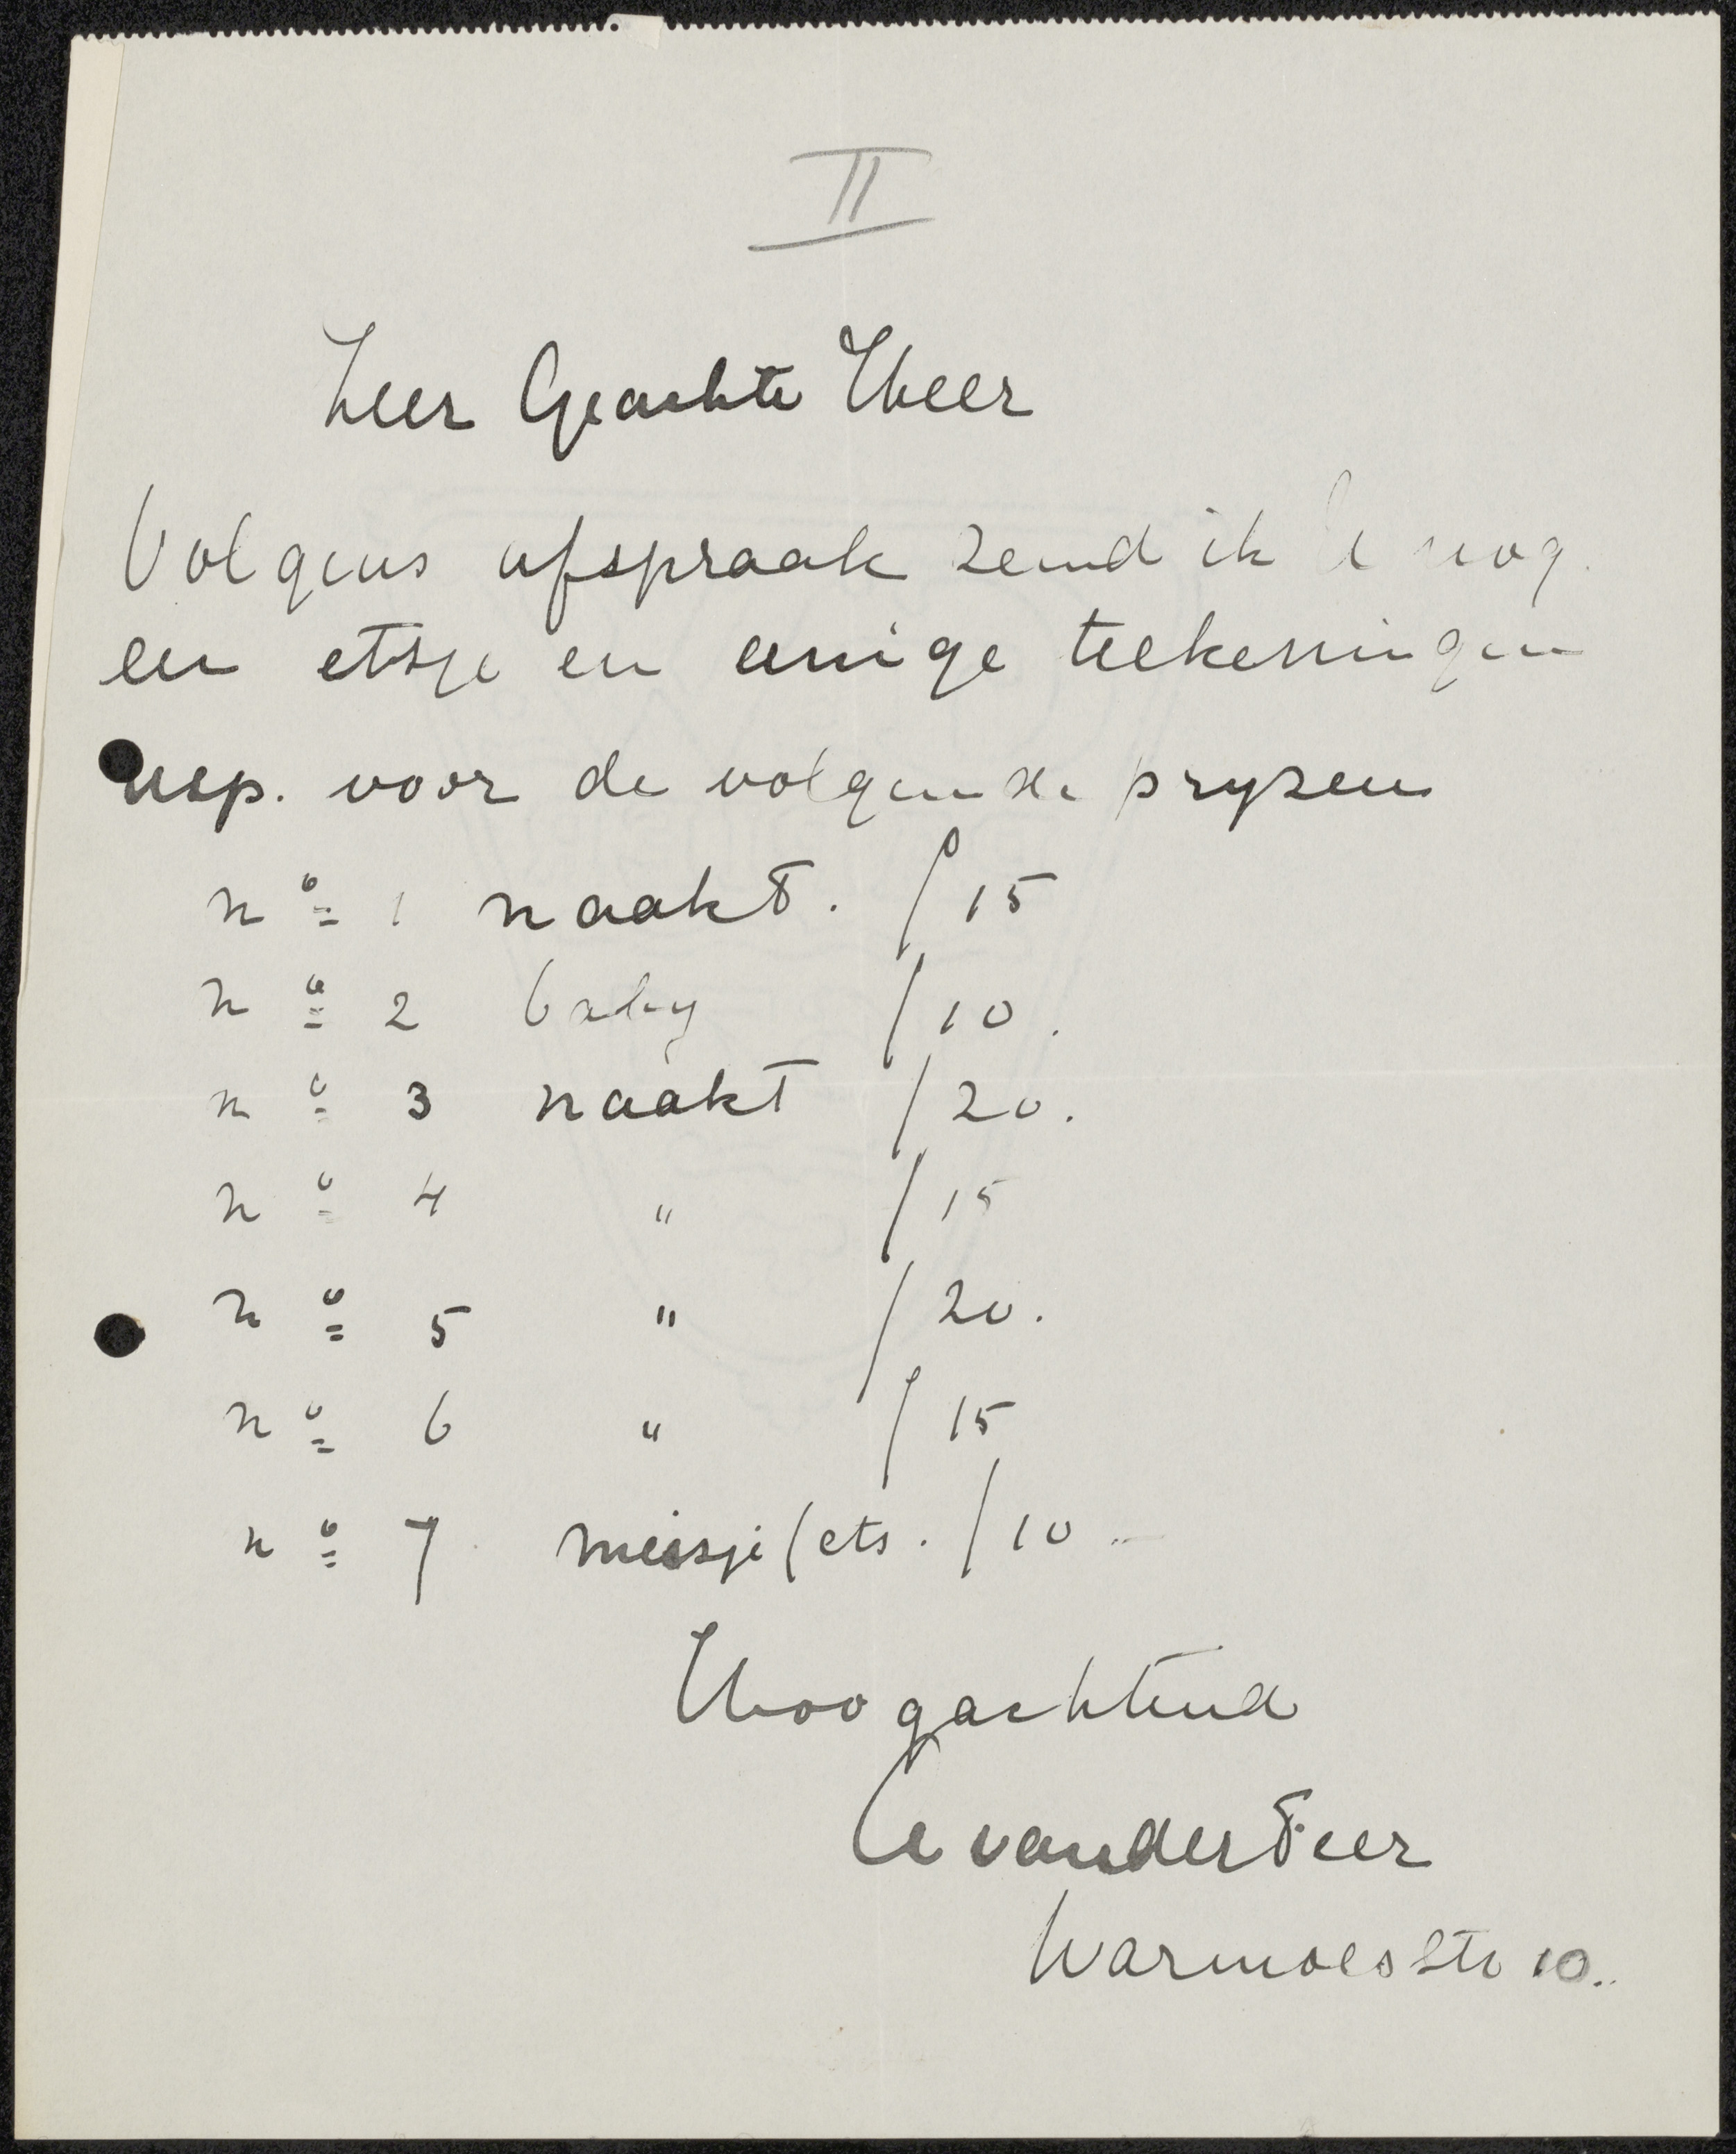 II
Zeer Geachte Heer
Volgens afspraak zend ik U nog
een etsje en eenige teekeningen
resp. voor de volgende pryzen
no 1 naakt. f 15
no 2 baby f 10.
no 3 naakt f 20.
no 4 " f 15
no 5 " f 20.
no 6 " f 15
no 7 meisje (ets. f 10
Hoogachtend
van der Feer
Warmoesstr 10.